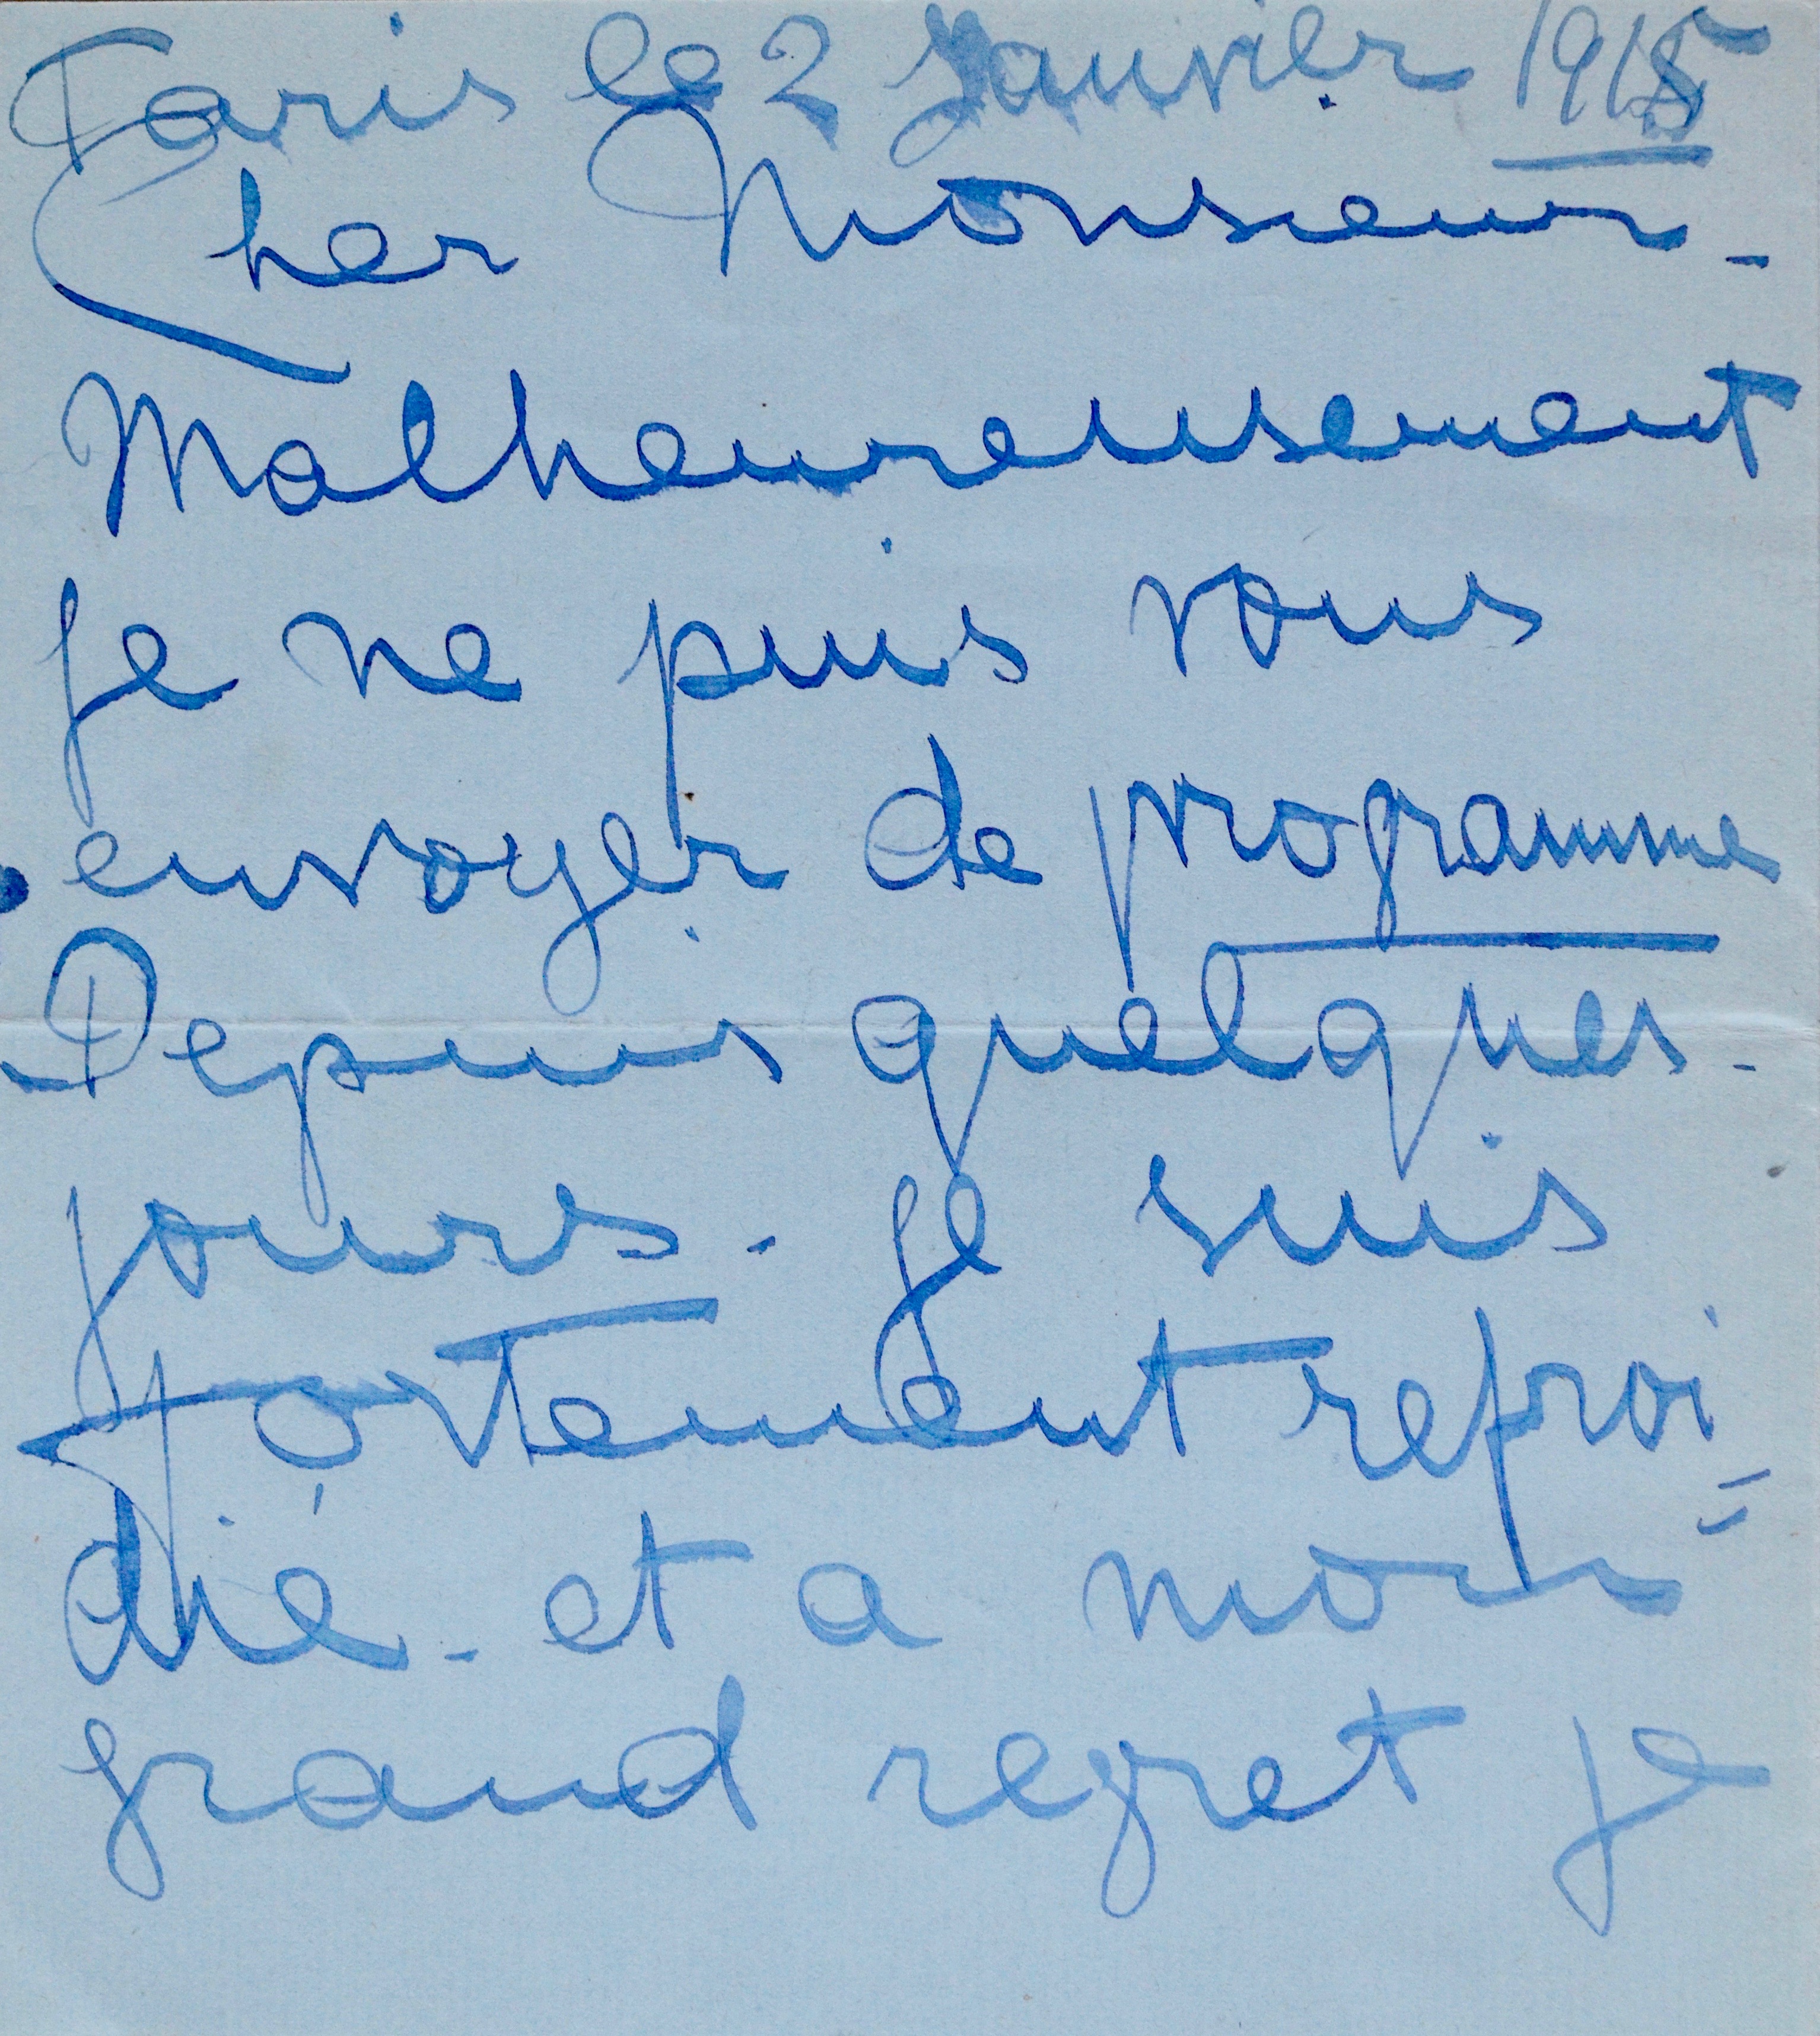 Paris le 2 Janvier 1915
Cher Monsieur -
Malheureusement
je ne puis vous
envoyer de programme
Depuis quelques -
jours - je suis
fortement refroi =
dié - et a mon
grand regret je